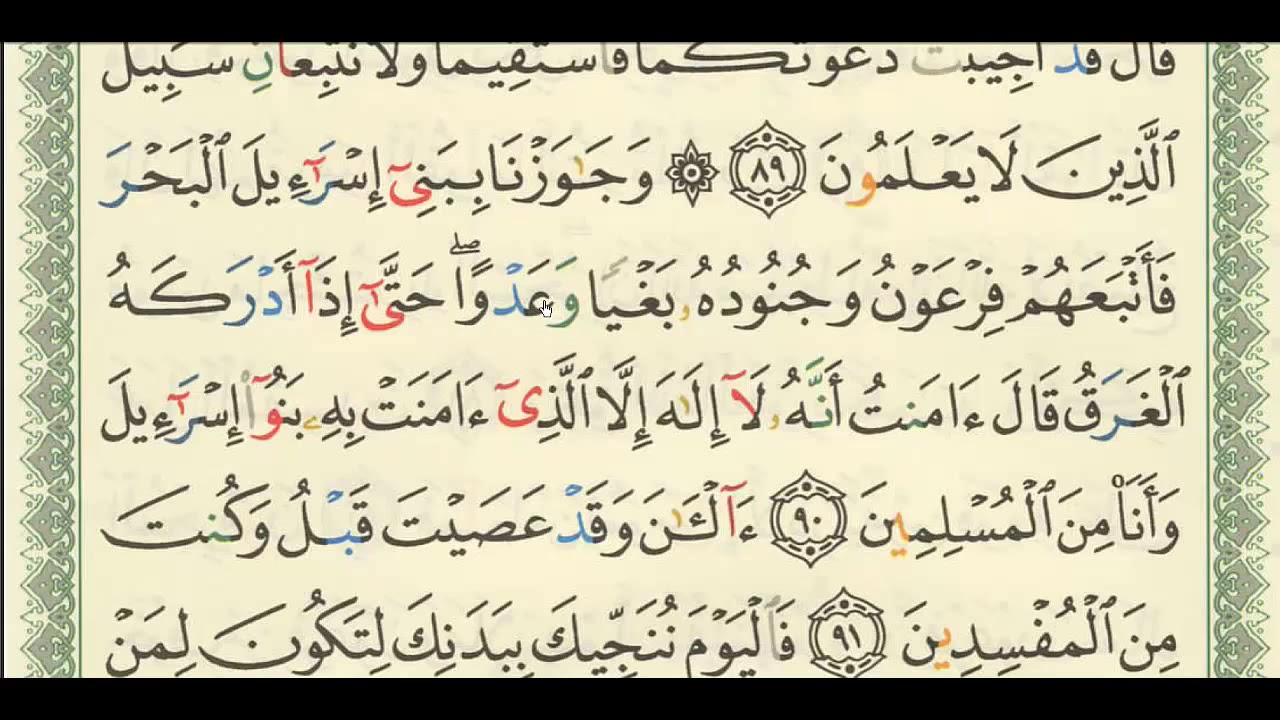 قَالَ قَدْ أُجِيبَت دَّعْوَتُكُمَا فَاسْتَقِيمَا وَلَا تَتَّبِعَانِ سَبِيلَ
ٱلَّذِينَ لَا يَعْلَمُونَ ٨٩ ۞ وَجَٰوَزْنَا بِبَنِىٓ إِسْرَٰٓءِيلَ ٱلْبَحْرَ
فَأَتْبَعَهُمْ فِرْعَوْنُ وَجُنُودُهُۥ بَغْيًا وَعَدْوًا ۖ حَتَّىٰٓ إِذَآ أَدْرَكَهُ
ٱلْغَرَقُ قَالَ ءَامَنتُ أَنَّهُۥ لَآ إِلَٰهَ إِلَّا ٱلَّذِىٓ ءَامَنَتْ بِهِۦ بَنُوٓا۟ إِسْرَٰٓءِيلَ
وَأَنَا۠ مِنَ ٱلْمُسْلِمِينَ ٩٠ ءَآلْـَٰٔنَ وَقَدْ عَصَيْتَ قَبْلُ وَكُنتَ
مِنَ ٱلْمُفْسِدِينَ ٩١ فَٱلْيَوْمَ نُنَجِّيكَ بِبَدَنِكَ لِتَكُونَ لِمَنْ